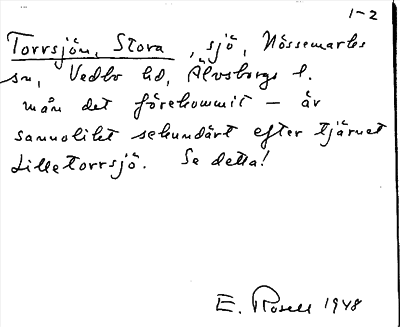 1-2
Torrsjön, Stora, sjö, Nössemarks
sn, Vedbo hd, Älvsborgs l.
mån det förekommit - är
sannolikt sekundärt efter tjärnet
Lilletorrsjö. Se detta!
E. Rosell 1948